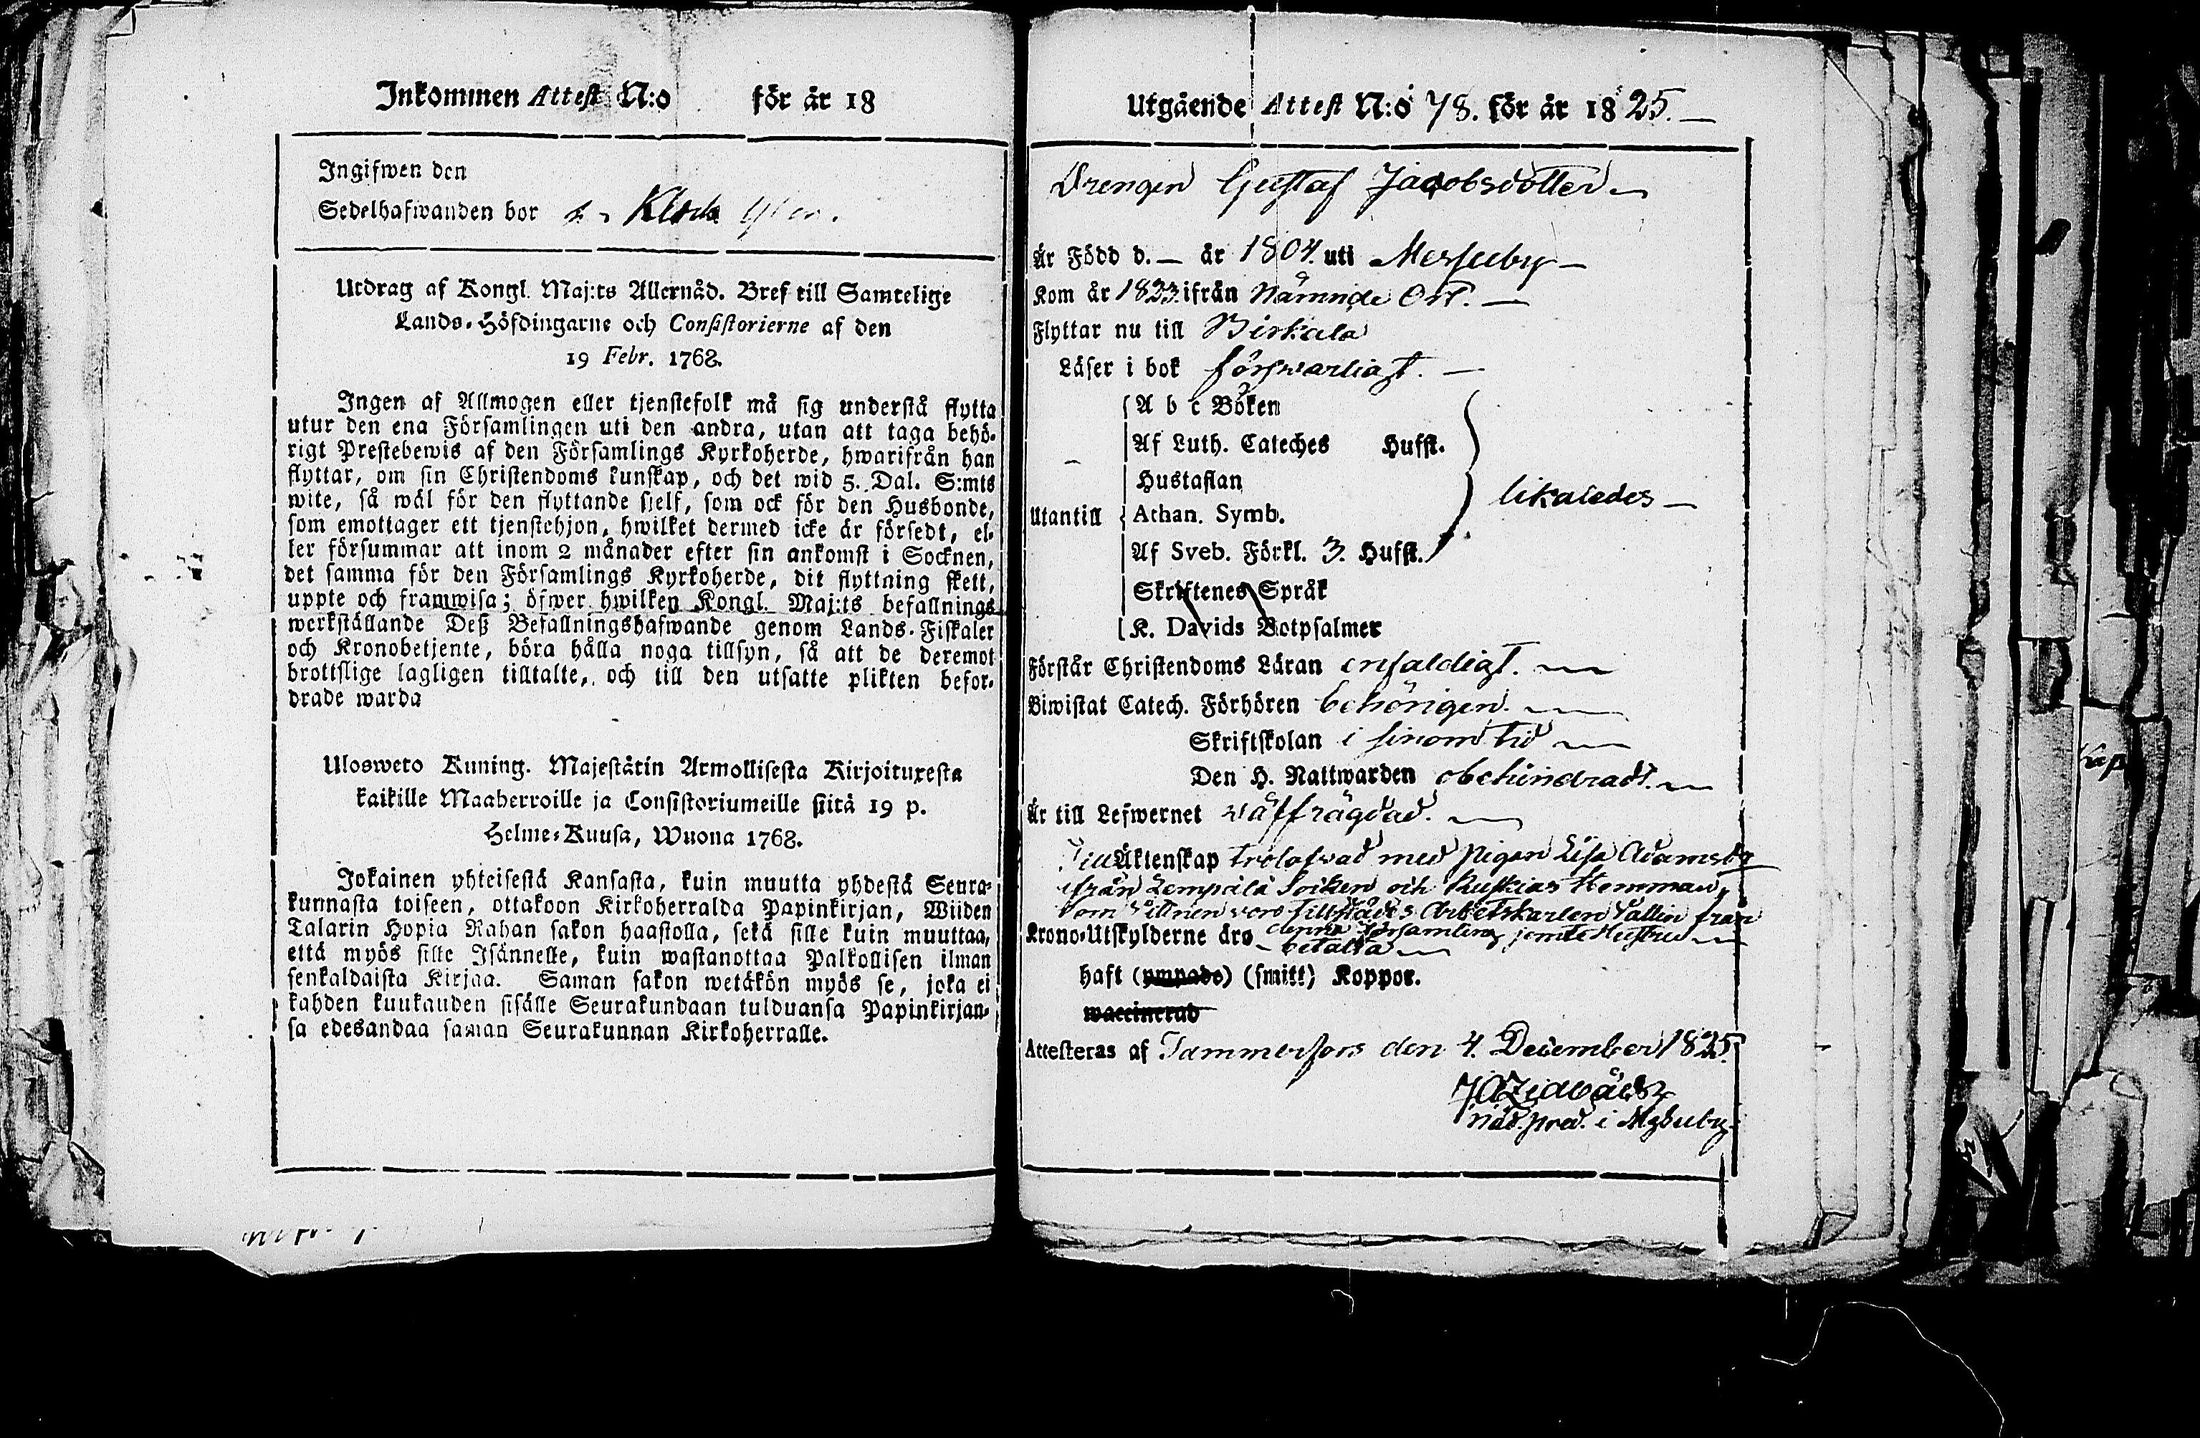 Inkommen Attest N:o för år 18
Ingifwen den
Sedelhafwanden bor
Utdrag af Kongl. Maj:ts Allernåd. Bref till Samtelige
Lands-Höfdingarne och Consistorierne af den
19 Febr. 1768.
Ingen af Allmogen eller tjenstefolk må sig understå flytta
utur den ena Församlingen uti den andra, utan att taga behö-
rigt Prestebewis af den Församlings Kyrkoherde, hwarifrån han
flyttar, om sin Christendoms kunskap, och det wid 5. Dal. S:mts
wite, så wäl för den flyttande sjelf, som ock för den Husbonde,
som emottager ett tjenstehjon, hwilket dermed icke är försedt, el-
ler försummar att inom 2 månader efter sin ankomst i Socknen,
det samma för den Församlings Kyrkoherde, dit flyttning skett,
uppte och framwisa; öfwer hwilken Kongl. Maj:ts befallnings
werkställande Deß Befallningshafwande genom Lands-Fiskaler
och Kronobetjente, böra hålla noga tillsyn, så att de deremot
brottslige lagligen tilltalte, och till den utsatte plikten befor-
drade warda
Ulosweto Kuning. Majestätin Armollisesta Kirjoituxesta
kaikille Maaherroille ja Consistoriumeille siitä 19 p.
Helme-Kuusa, Wuona 1768.
Jokainen yhteisestä Kansasta, kuin muutta yhdestä Seura-
kunnasta toiseen, ottakoon Kirkoherralda Papinkirjan, Wiiden
Talarin Hopia Rahan sakon haastolla, sekä sille kuin muuttaa,
että myös sille Isännelle, kuin wastanottaa Palkollisen ilman
senkaldaista Kirjaa. Saman sakon wetäkön myös se, joka ei
kahden kuukauden sisälle Seurakundaan tulduansa Papinkirjan-
sa edesandaa saman Seurakunnan Kirkoherralle.
Utgående Attest N:o 78. för år 1825.
Drengen Gustaf Jacobsdotter
Är Född d. — år 1804 uti Messuby
Kom år 1823 ifrån Nämnde Ort.
Flyttar nu till Birkala
Läser i bok förswarligt.
A b c Boken
Af Luth. Cateches Hufst.
Hustaflan
Utantill Athan. Symb. likaledes
Af Sveb. Förkl. 3. Hufst.
Skriftenes Språk
K. Davids Botpsalmer
Förstår Christendoms Läran enfaldigt.
Biwistat Catech. Förhören behörigen.
Skriftskolan i sinom tid
Den H. Nattwarden obehindradt.
Är till Lefwernet wälfrägdad.
Till Äktenskap trolofwad med pigan Lisa Adamsdr
ifrån Lempälä Socken och Kuskias Hemman,
som Vittnen voro tillstädes Arbetskarlen Vallin från
denna Församling jemte Hustru
Krono-Utskylderne äro betalta
haft (ympade) (smitt) Koppor.
waccinerad
Attesteras af Tammerfors den 4. December 1825.
nåd. pred. i